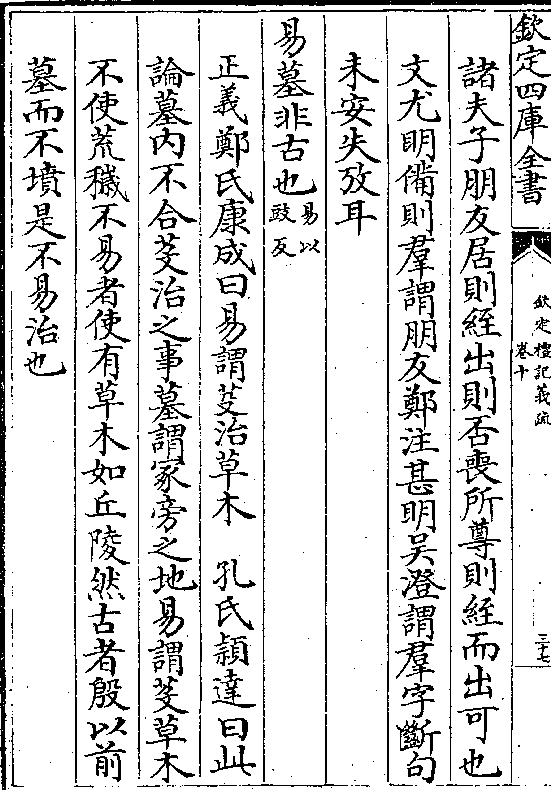 欽定四庫全書
欽定禮記義疏
卷十
三十七
諸夫子朋友居則絰出則否喪所尊則絰而出可也
文尤明備則羣謂朋友鄭注甚明吳澄謂羣字斷句
未安失攷耳
易墓非古也易以豉反
正義鄭氏康成曰易謂芟治草木 孔氏穎達曰此
論墓內不合芟治之事墓謂冢旁之地易謂芟草木
不使荒穢不易者使有草木如丘陵然古者殷以前
墓而不墳是不易治也